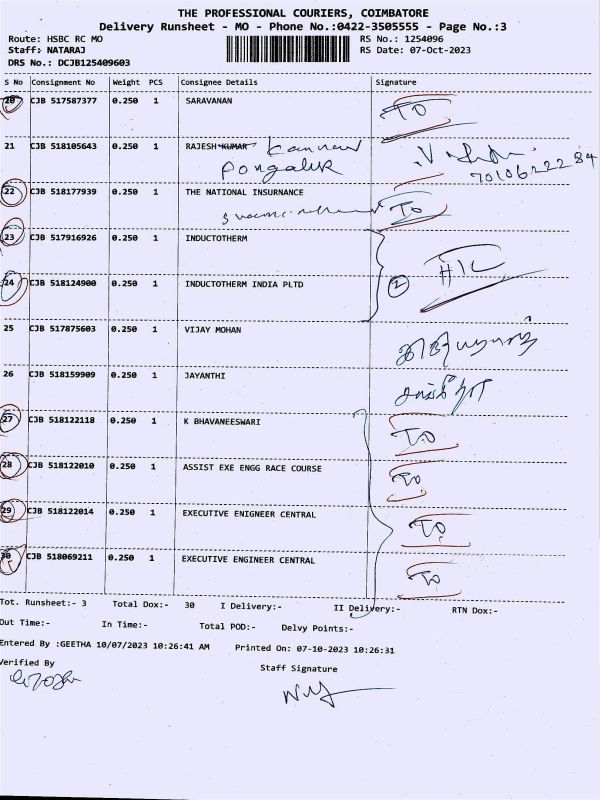 THE PROFESSIONAL COURIERS, COIMBATORE
Delivery Runsheet - MO - Phone No.:0422-3505555 - Page No.:3
Route: HSBC RC MO RS No.: 1254096
Staff: NATARAJ RS Date: 07-Oct-2023
DRS No.: DCJB125409603
S No Consignment No Weight PCS Consignee Details Signature
20 CJB 517587377 0.250 1 SARAVANAN TO
21 CJB 518105643 0.250 1 RAJESH KUMAR Kannan
Pongalur
22 CJB 518177939 0.250 1 THE NATIONAL INSURNANCE TO
23 CJB 517916926 0.250 1 INDUCTOTHERM
24 CJB 518124900 0.250 1 INDUCTOTHERM INDIA PLTD 2 H/C
25 CJB 517875603 0.250 1 VIJAY MOHAN
26 CJB 518159909 0.250 1 JAYANTHI
27 CJB 518122118 0.250 1 K BHAVANEESWARI TO
28 CJB 518122010 0.250 1 ASSIST EXE ENGG RACE COURSE TO
29 CJB 518122014 0.250 1 EXECUTIVE ENIGNEER CENTRAL TO
30 CJB 518069211 0.250 1 EXECUTIVE ENGINEER CENTRAL TO
Tot. Runsheet:- 3 Total Dox:- 30 I Delivery:- II Delivery:- RTN Dox:-
Out Time:- In Time:- Total POD:- Delvy Points:-
Entered By :GEETHA 10/07/2023 10:26:41 AM Printed On: 07-10-2023 10:26:31
Verified By Staff Signature